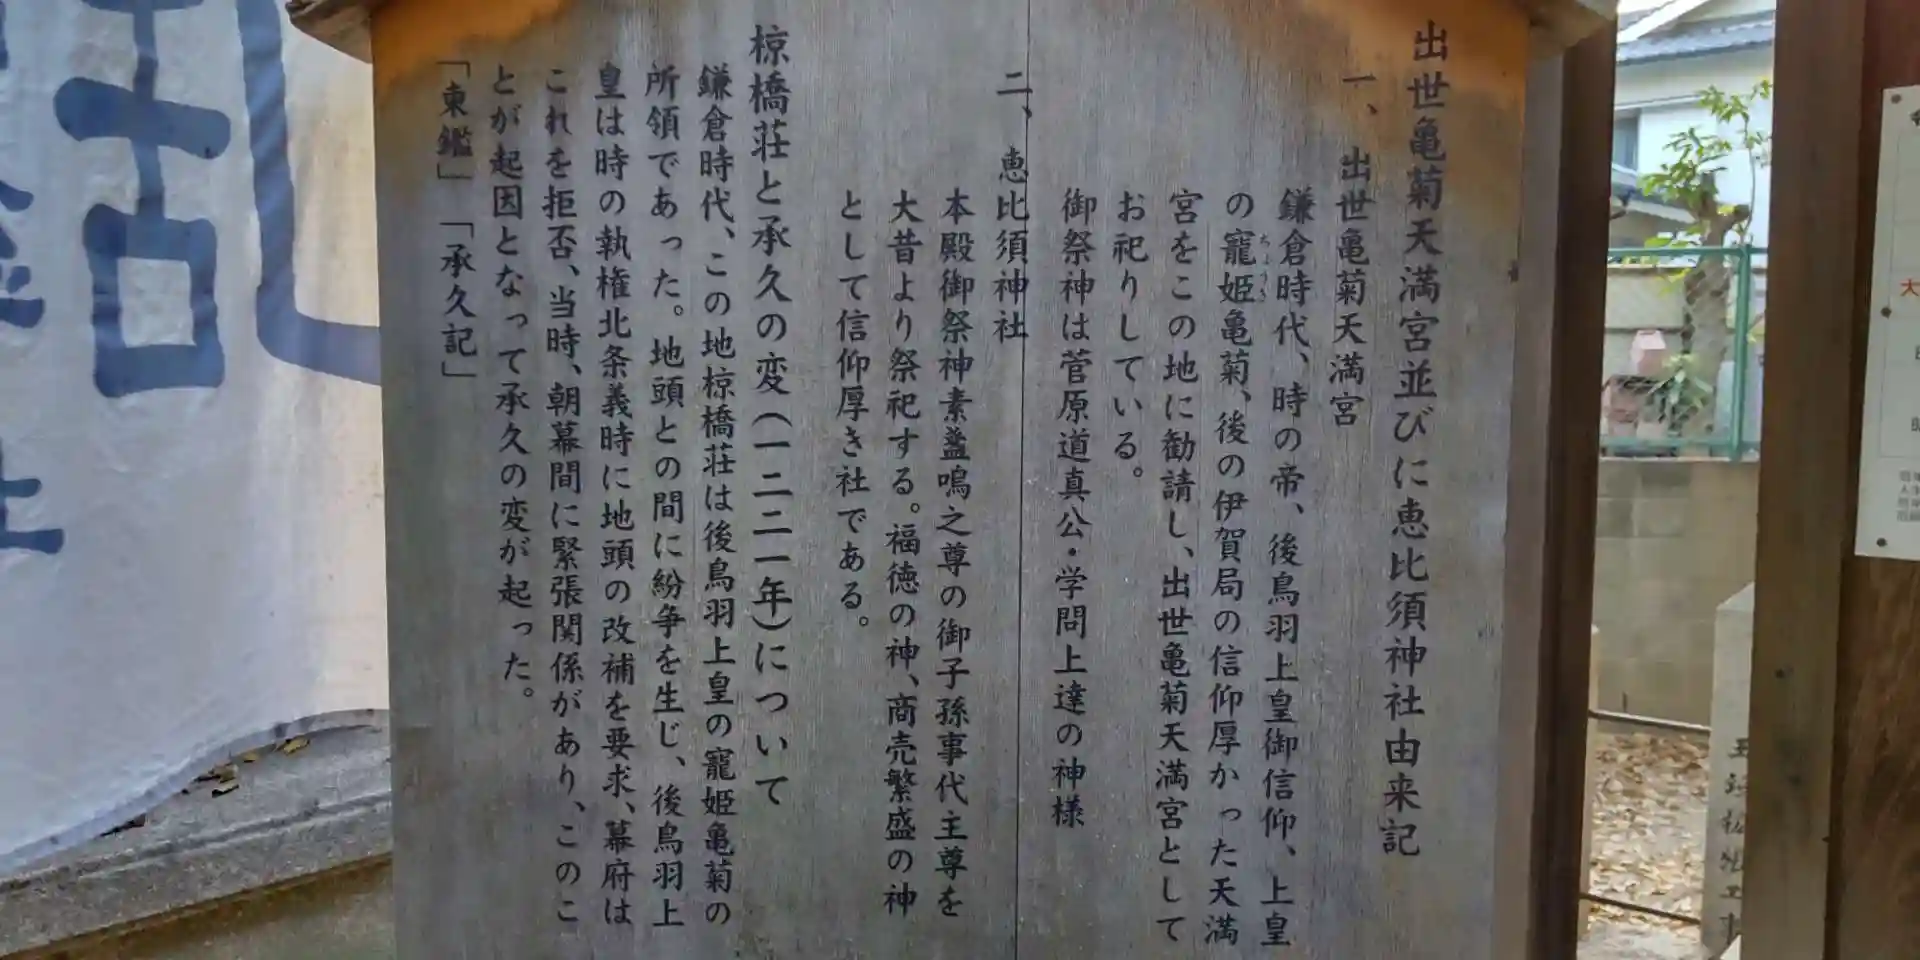 出世亀菊天満宮並びに恵比須神社由来記
一、出世亀菊天満宮
鎌倉時代、時の帝、後鳥羽上皇御信仰、上皇
の寵姫亀菊、後の伊賀局の信仰厚かった天満
ちょうき
宮をこの地に勧請し、出世亀菊天満宮として
お祀りしている。
御祭神は菅原道真公・学問上達の神様
二、恵比須神社
本殿御祭神素盞鳴之尊の御子孫事代主尊を
大昔より祭祀する。福徳の神、商売繁盛の神
として信仰厚き社である。
椋橋荘と承久の変(一二二一年)について
鎌倉時代、この地椋橋荘は後鳥羽上皇の寵姫亀菊の
所領であった。地頭との間に紛争を生じ、後鳥羽上
皇は時の執権北条義時に地頭の改補を要求、幕府は
これを拒否、当時、朝幕間に緊張関係があり、このこ
とが起因となって承久の変が起った。
「東鑑」「承久記」